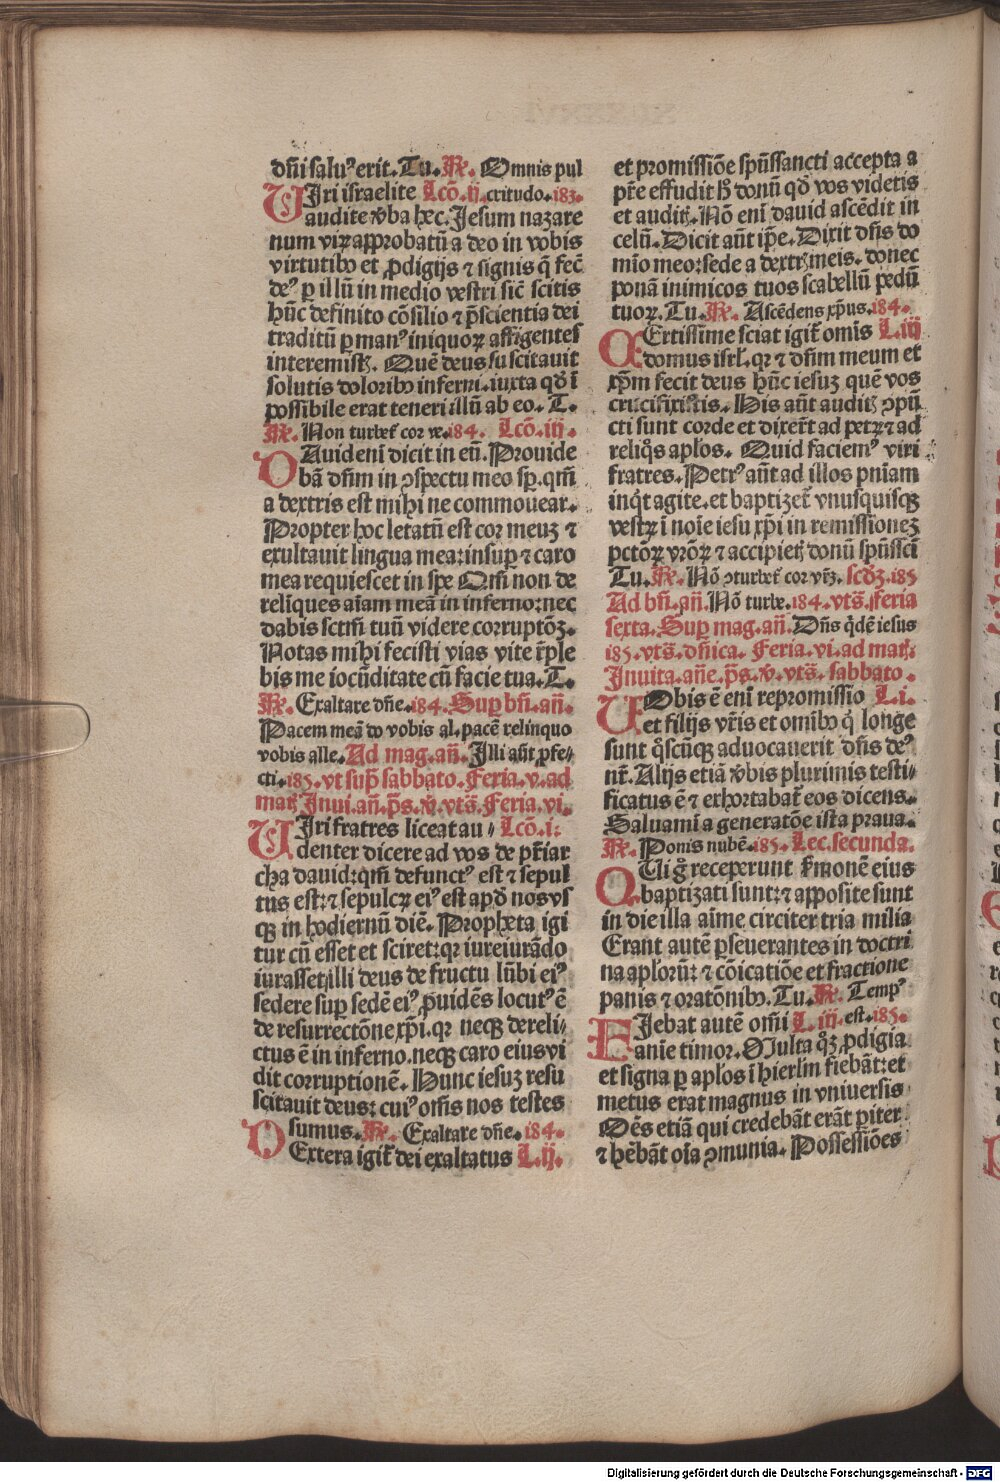 dñi saluꝰ erit. Tu. ℟. Omnis pul
VIri israelite Lcõ. ij. critudo. 183.
audite v̾ba hec. Jesum nazare
num virꝫ approbatũ a deo in vobis
virtutibꝰ et ꝓdigijs ⁊ signis q̃ fec̃
deꝰ ꝑ illũ in medio vestri sic̃ scitis
hũc definito cõsilio ⁊ p̃scientia dei
traditũ ꝑ manꝰ iniquoꝝ affligentes
interemistꝭ. Quẽ deus suscitauit
solutis doloribꝰ inferni. iuxta qđ ĩ
possibile erat teneri illũ ab eo. T.
℟. Non turbet̃ cor ve. 184. Lcõ. iij.
DAuid eni dicit in eũ. Prouide
bã dñm in ꝯspectu meo sꝑ. qm̃
a dextris est mihi ne commouear.
Propter hoc letatũ est cor meuꝫ ⁊
exultauit lingua mea: insuꝑ ⁊ caro
mea requiescet in spe Qm̃ non de
relĩques aĩam meã in inferno: nec
dabis sctm̃ tuũ videre corruptõꝫ.
Notas mihi fecisti vias vite r̃ple
bis me iocũditate cũ facie tua. T.
℟. Exaltare dñe. 184. Suꝑ bñ. añ.
Pacem meã do vobis al. pacẽ relinquo
vobis alle. Ad mag. añ. Illi añt ꝓfe⸗
cti. 185. vt sup̃ sabbato. Feria. v. ad
matꝭ Inui. añ. p̃s. v̾. vts̃. Feria. vi.
VIri fratres liceat au⸗ Lcõ. i:
denter dicere ad vos de pr̃iar
cha dauid: qm̃ defunctꝰ est ⁊ sepul
tus est: ⁊ sepulcꝝ eiꝰ est apđ nos vs
qꝫ in hodiernũ diẽ. Propheta igi
tur cũ esset et sciret: qꝛ iureiurãdo
iurasset illi deus de fructu lũbi eiꝰ
sedere suꝑ sedẽ eiꝰ ꝓuidẽs locutꝰ ẽ
de resurrectõne xp̃i. qꝛ neqꝫ dereli⸗
ctus ẽ in inferno. neqꝫ caro eius vi
dit corruptionẽ. Hunc iesuꝫ resu
scitauit deus: cuiꝰ om̃s nos testes
sumus. ℟. Exaltare dñe. 184.
DExtera igit̃ dei exaltatus L. ij.
et promissiõe spũssancti accepta a
pr̃e effudit h̃ donũ qđ vos videtis
et auditꝭ. Nõ eni dauid ascẽdit in
celũ. Dicit aũt ip̃e. Dixit dñs do
mĩo meo: sede a dextꝭ meis. donec
ponã inimicos tuos scabellũ pedũ
tuoꝝ. Tu. ℟. Ascẽdens xp̃us. 184.
CErtissime sciat igit̃ omĩs L. iij
domus isrl̃. qꝛ ⁊ dñm meum et
xp̃m fecit deus hũc iesuꝫ quẽ vos
crucifixistis. His añt auditꝭ ꝯpũ
cti sunt corde et dixer̃t ad petꝝ ⁊ ad
reliq̊s apl̃os. Quid faciemꝰ viri
fratres. Petrꝰ añt ad illos pñiam
inq̃t agite. et baptizet̃ vnusquisqꝫ
vestꝝ ĩ noĩe iesu xp̃i in remissionẽꝫ
pctõꝝ vr̃õꝝ ⁊ accipietꝭ donũ spũssci
Tu. ℟. Nõ ꝯturbet̃ cor vr̃ꝫ. scd̃ꝫ. 185
Ad bñ. añ. Nõ turbe. 184. vts̃. Feria
sexta. Suꝑ mag. añ. Dñs q̃dẽ iesus
185. vts̃. dñica. Feria. vi. ad matꝭ.
Inuita. añe. p̃s. v̾. vts̃. sabbato.
VObis ẽ eni repromissio L. i.
et filijs vr̃is et omĩbꝰ q̃ longe
sunt q̃scũqꝫ aduocauerit dñs deꝰ
nr̃. Alijs etiã v̾bis plurimis testi⸗
ficatus ẽ ⁊ exhortabat̃ eos dicens.
Saluami a generatõe ista praua.
℟. Ponis nubẽ. 185. Lec. secunda.
QUi g̃ receperunt s̾monẽ eius
baptizati sunt: ⁊ apposite sunt
in die illa aĩme circiter tria milia
Erant autẽ ꝑseuerantes in doctri
na apl̃orũ: ⁊ cõicatiõe et fractione
panis ⁊ oratõnibꝰ. Tu. ℟. Tempꝰ
FIebat autẽ om̃i L. iij. est. 185.
anĩe timor. Multa q̊ꝫ ꝓdigia
et signa ꝑ apl̃os ĩ hierlm̃ fiebãt: et
metus erat magnus in vniuersis
Oẽs etiã qui credebãt erãt ꝑiter
⁊ hẽbãt oĩa ꝯmunia. Possessiões
Digitalisierung gefördert durch die Deutsche Forschungsgemeinschaft - DFG